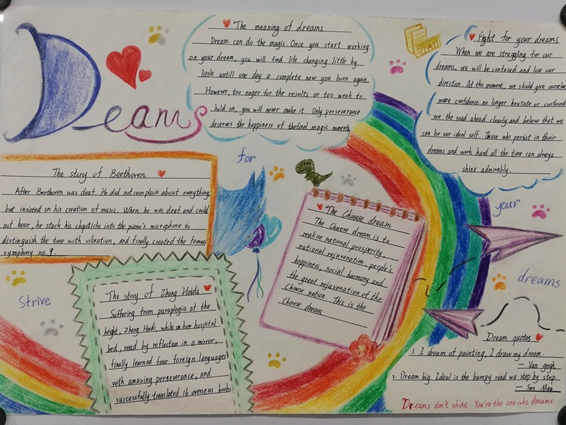 Dreams
The meaning of dreams
Dream can do the magic. Once you start working
on your dream, you will find life changing little by
little until one day a complete new you born again.
However, too eager for the results or too week to
hold on, you will never make it. Only perseverance
deserves the happiness of the final magic moment
Fight for your dreams
When we are struggling for our
dreams, we will be confused and lose our
direction. At this moment, we should give ourselves
more confidence no longer hesitate or confused
see the road ahead clearly and believe that we
can be our ideal self. Those who persist in their
dreams and work hard all the time can always
shine admirably.
for
The story of Beethoven
After Beethoven was deaf. He did not complain about everything,
but insisted on his creation of music. When he was deaf and could
not hear, he stuck his chopsticks into the piano's microphone to
distinguish the tune with vibration, and finally created the famous
symphony no.9
your
The Chinese dream
The Chinese dream is to
realize national prosperity,
national rejuvenation, people's
happiness, social harmony and
the great rejuvenation of the
Chinese nation. This is the
Chinese dream
dreams
Strive
The story of Zhang Haidi
Suffering from paraplegia at the
height, Zhang Haidi, while on her hospital
bed, read by reflection in a mirror,
finally learned four foreign languages
with amazing perseverance, and
successfully translated 16 overseas books
Dream quotes
1. I dream of painting, I draw my dream.
— Van gogh
2. Dream big. Ideal is the bumpy road we step by step
— San Mao
Dreams don't shine. You're the one who dreams.